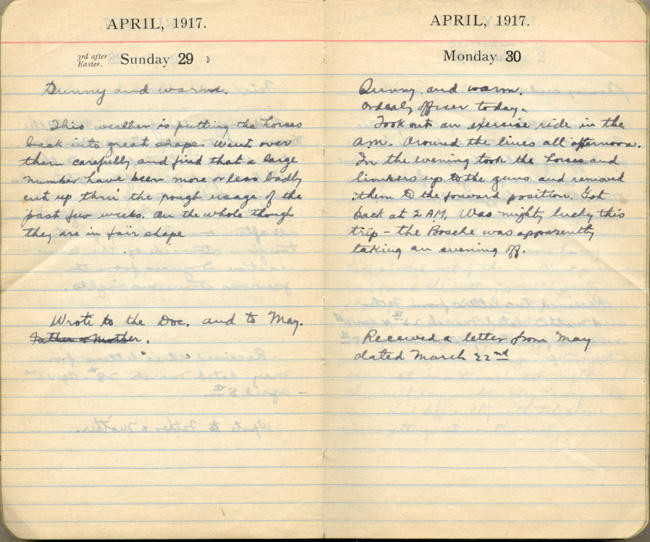 APRIL, 1917.
3rd after
Easter.
Sunday 29
Sunny and warm.
This weather is putting the horses
back into great shape. Went over
them carefully and find that a large
number have been more or less badly
cut up thru the rough usage of the
past few weeks. On the whole though
they are in fair shape
Wrote to the Doc. and to May.
Father & Mother.
APRIL, 1917.
Monday 30
Sunny and warm.
Orderly officer today.
Took out an exercise ride in the
am. Around the lines all afternoon.
In the evening took the horses and
limbers up to the guns and removed
them to the forward position. Got
back at 2 AM. Was mighty lucky this
trip – the Bosche was apparently
taking an evening off.
Received a letter from May
dated March 22nd